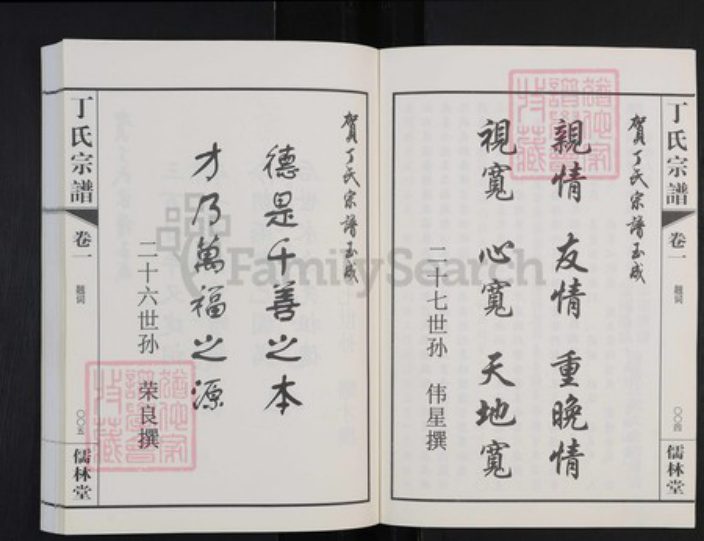 丁氏宗譜
卷一
題词
〇〇四
儒林堂
賀丁氏宗譜玉成
親情 友情 重晚情
視寬 心寬 天地寬
二十七世孙 伟星撰
賀丁氏宗譜玉成
德是千善之本
才乃萬福之源
二十六世孙 荣良撰
丁氏宗譜
卷一
題词
〇〇五
儒林堂
FamilySearch